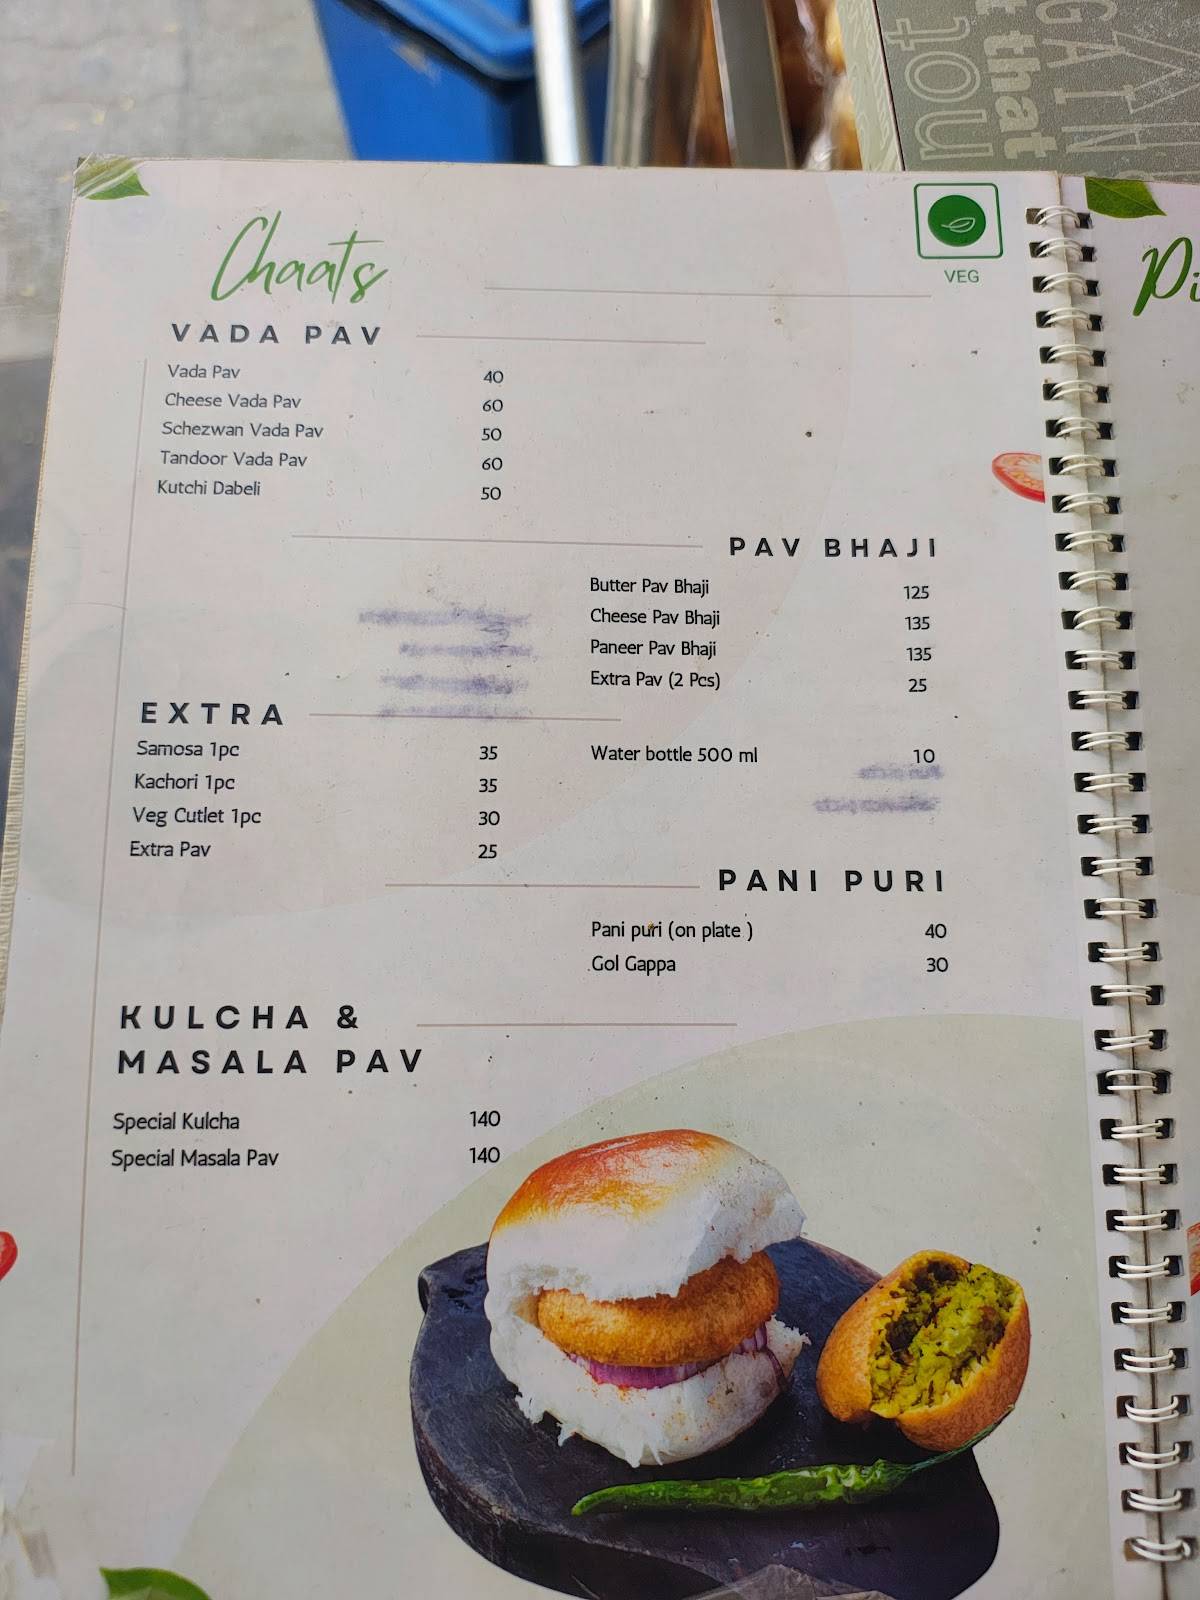 tou
t that
GAIN
VEG
Chaats
VADA PAV
Vada Pav 40
Cheese Vada Pav 60
Schezwan Vada Pav 50
Tandoor Vada Pav 60
Kutchi Dabeli 50
PAV BHAJI
Butter Pav Bhaji 125
Cheese Pav Bhaji 135
Paneer Pav Bhaji 135
Extra Pav (2 Pcs) 25
EXTRA
Samosa 1pc 35
Kachori 1pc 35
Veg Cutlet 1pc 30
Extra Pav 25
Water bottle 500 ml 10
PANI PURI
Pani puri (on plate ) 40
.Gol Gappa 30
KULCHA &
MASALA PAV
Special Kulcha 140
Special Masala Pav 140
Pi